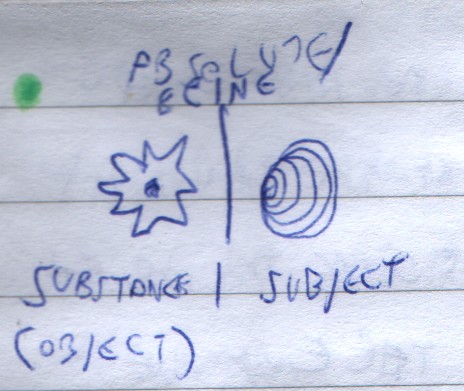 ABSOLUTE/
BEING
SUBSTANCE | SUBJECT
(OBJECT)